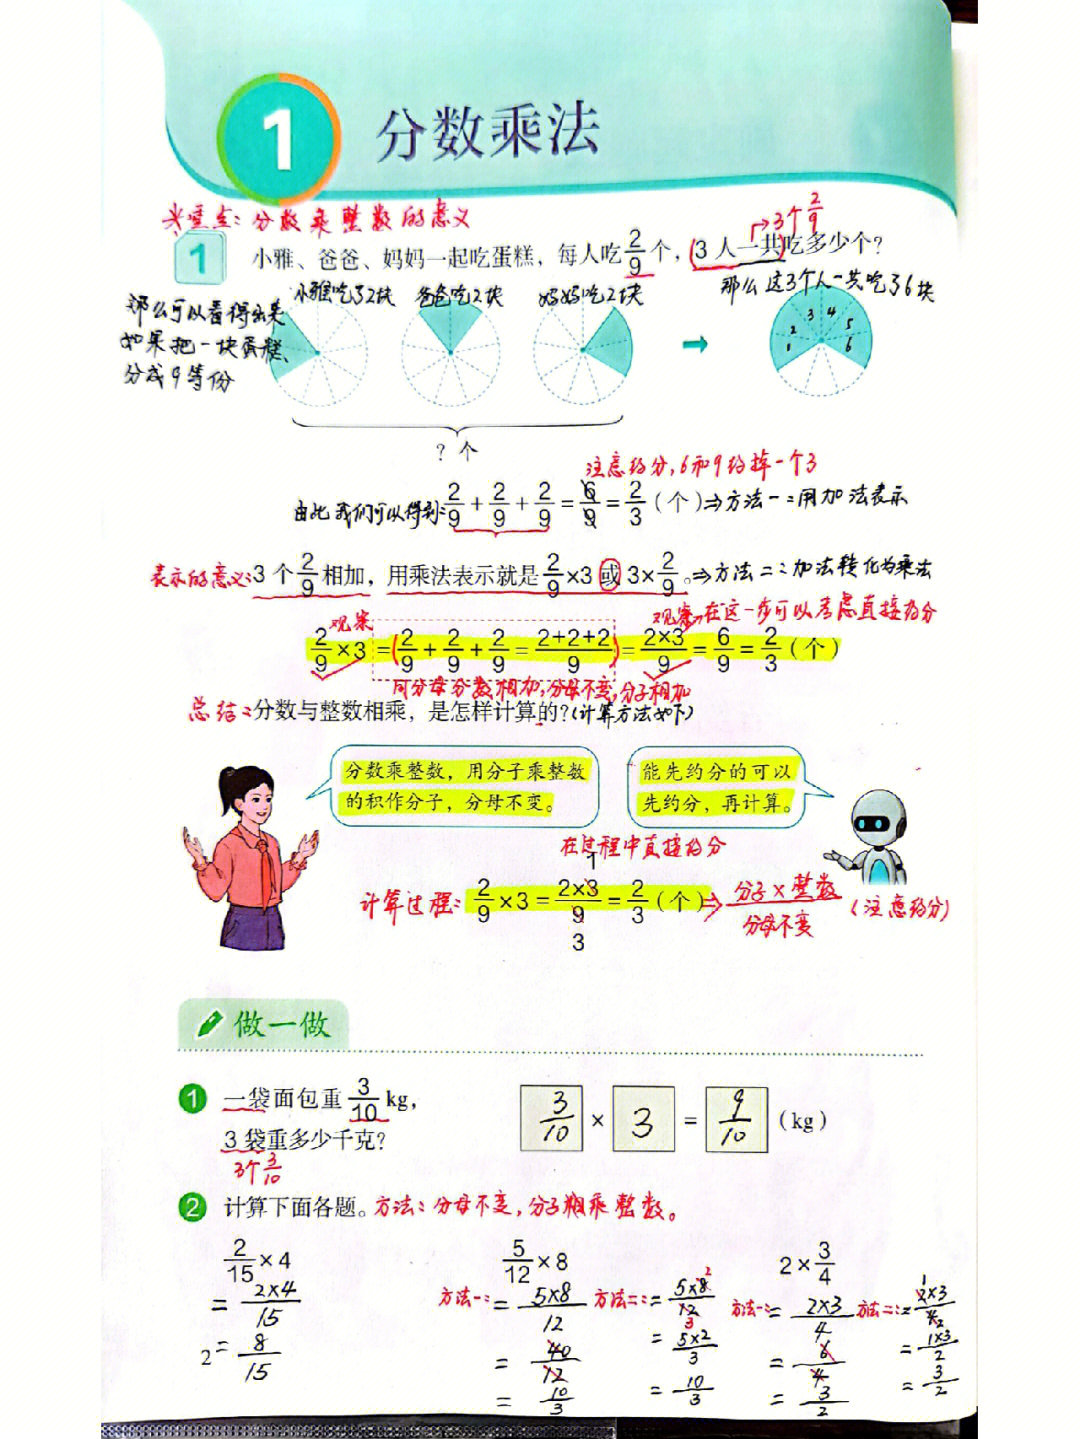 1 分数乘法
兴重点：分数乘整数的意义
→3个2/9
1 小雅、爸爸、妈妈一起吃蛋糕，每人吃2/9个，3人一共吃多少个？
小雅吃了2块 爸爸吃2块 妈妈吃2块 那么这3个人一共吃了6块
那么可以看得出来
如果把一块蛋糕、
分成9等份
1 2 3 4 5 6
？个
注意约分，6和9约掉一个3
由此我们可以得到：2/9+2/9+2/9=6/9=2/3（个）⇒方法一：用加法表示
表示的意义：3个2/9相加，用乘法表示就是2/9×3或3×2/9。⇒方法二：加法转化为乘法
观察 观察→在这一步可以考虑直接约分
2/9×3=(2/9+2/9+2/9=2+2+2/9)=2×3/9=6/9=2/3（个）
同分母分数相加，分母不变，分子相加
总结：分数与整数相乘，是怎样计算的？（计算方法如下）
分数乘整数，用分子乘整数
的积作分子，分母不变。
能先约分的可以
先约分，再计算。
在过程中直接约分
计算过程：2/9×3=2×3/9=2/3（个）⇒分子×整数/分母不变（注意约分）
1
3
做一做
1 一袋面包重3/10kg，
3袋重多少千克？
3个3/10
3/10 × 3 = 9/10（kg）
2 计算下面各题。方法：分母不变，分子相乘整数。
2/15×4
=2×4/15
=8/15
5/12×8
方法一：=5×8/12
=40/12
=10/3
方法二：=5×8/12
2
3
=5×2/3
=10/3
2×3/4
方法一：=2×3/4
=6/4
=3/2
方法二：=2×3/4
1
2
=1×3/2
=3/2
2